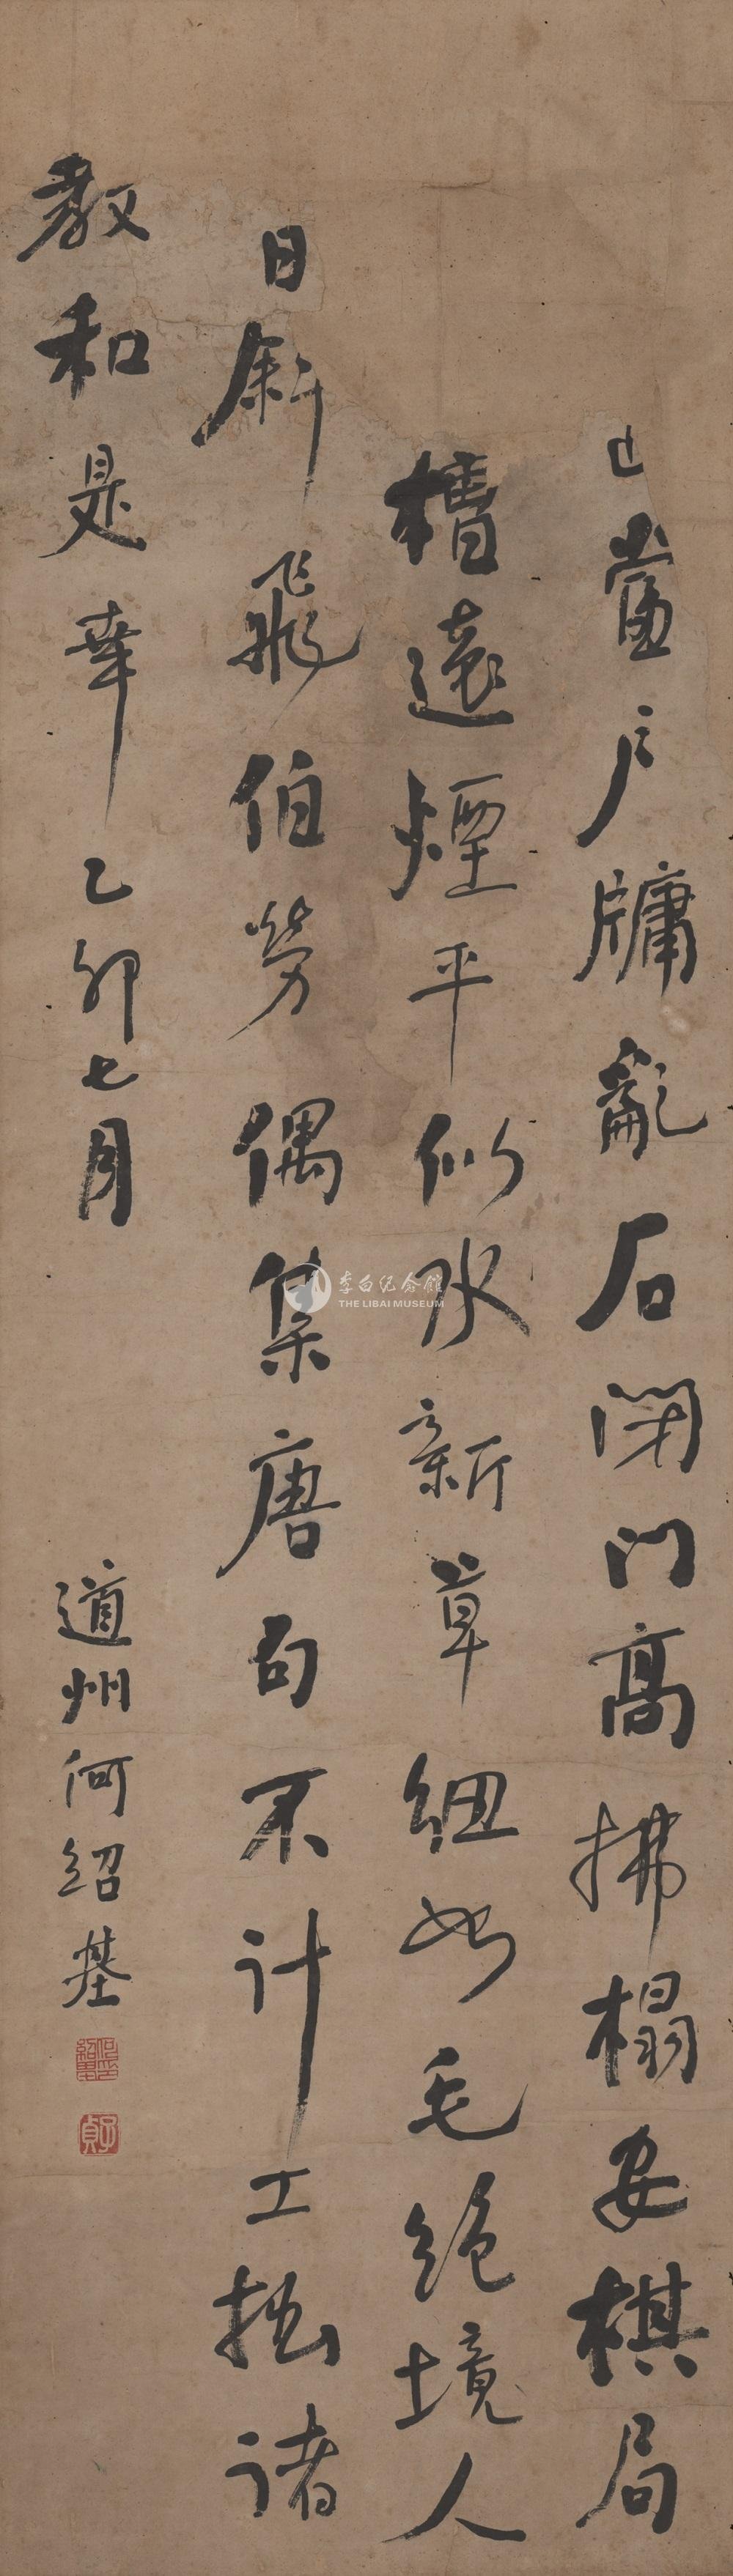 當户牖亂石閉門高拂榻安棋局
槽遠煙平似水新草細如毛絕境人
日斜飛伯勞偶集唐句不計工拙諸
教和是幸乙卯七月
道州何紹基
子貞
李白纪念馆
THE LIBAI MUSEUM